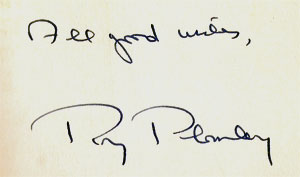 All good wishes,
Roy Plomley